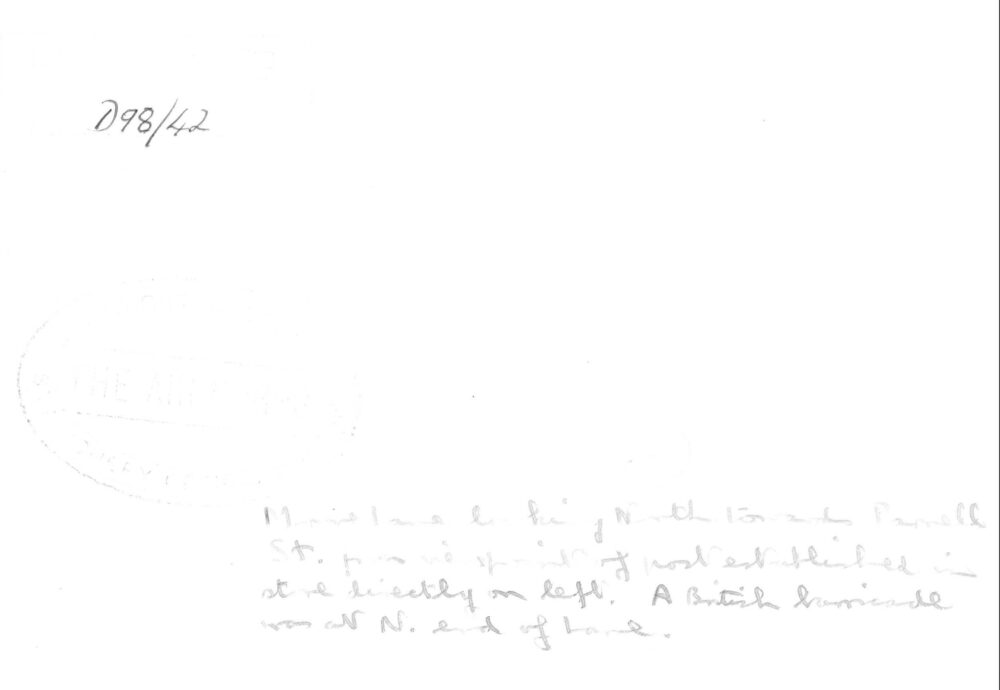 D98/42
THE AIR
Moore Lane looking North towards Parnell
St. from viewpoint of post established in
store directly on left. A British barricade
was at N. end of Lane.